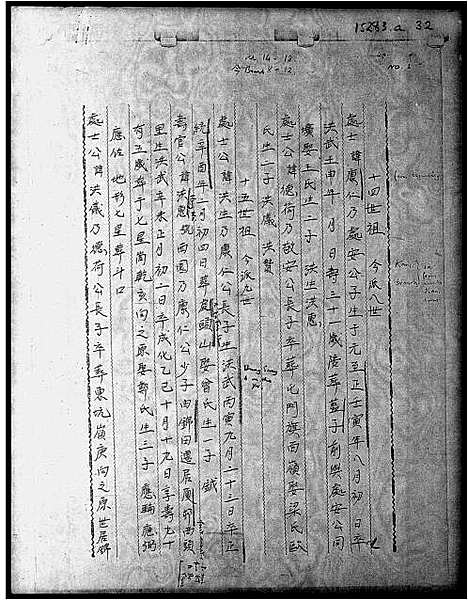 15283.a 32
十四世祖 今派八世
處士諱康仁乃處安公子生于元至正壬寅年八月初 日卒
洪武壬申年 月 日壽三十一歲後葬葛子前與處安公同
壙娶王氏生二子 洪生 洪惠
處士公諱德荷乃敬安公長子卒葬屯門旗西嶺娶梁氏歐
氏生二子 洪儀 洪贊
十五世祖 今派九世
處士公諱洪生乃康仁公長子生洪武丙寅九月二十三日卒正
統辛酉年二月初四日葬 頭山娶曾氏生一子 鉞
壽官公諱洪惠號西園乃康仁公少子由錦田遷居 西頭
里生洪武辛未正月初二日卒成化乙巳十月十九日享壽九十
有五歲葬于七星崗乾亥向之原娶鄭氏生三子
應佐 地形七星葬斗口
處士公諱洪儀乃德荷公長子卒葬東坑嶺庚向之原世居錦